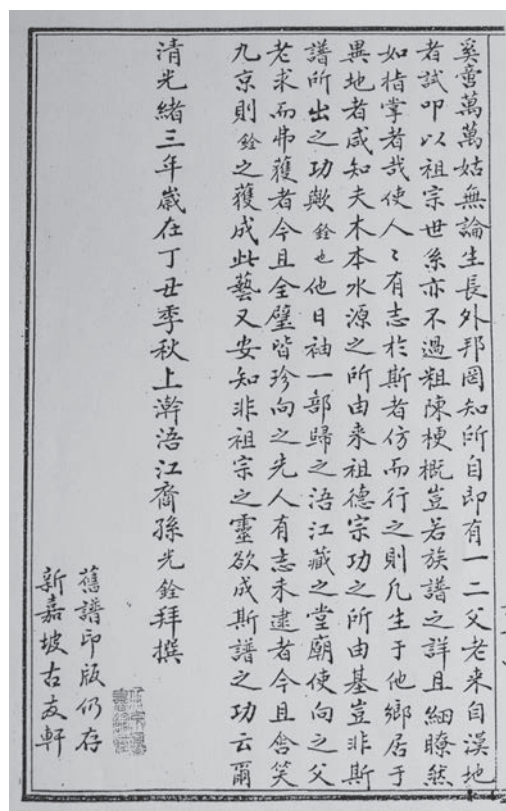 奚啻萬萬姑無論生長外邦罔知所自即有一二父老来自漢地
者試叩以祖宗世系亦不過粗陳梗概豈若族譜之詳且細瞭然
如指掌者哉使人々有志於斯者仿而行之則凡生于他鄉居于
異地者咸知夫木本水源之所由来祖德宗功之所由基豈非斯
譜所出之功歟銓也他日袖一部歸之浯江藏之堂廟使向之父
老求而弗獲者今且全璧皆珍向之先人有志未逮者今且含笑
九京則銓之獲成此藝又安知非祖宗之靈欲成斯譜之功云爾
清光緒三年歲在丁丑季秋上澣浯江裔孫光銓拜撰
舊譜印版仍存
新嘉坡古友軒